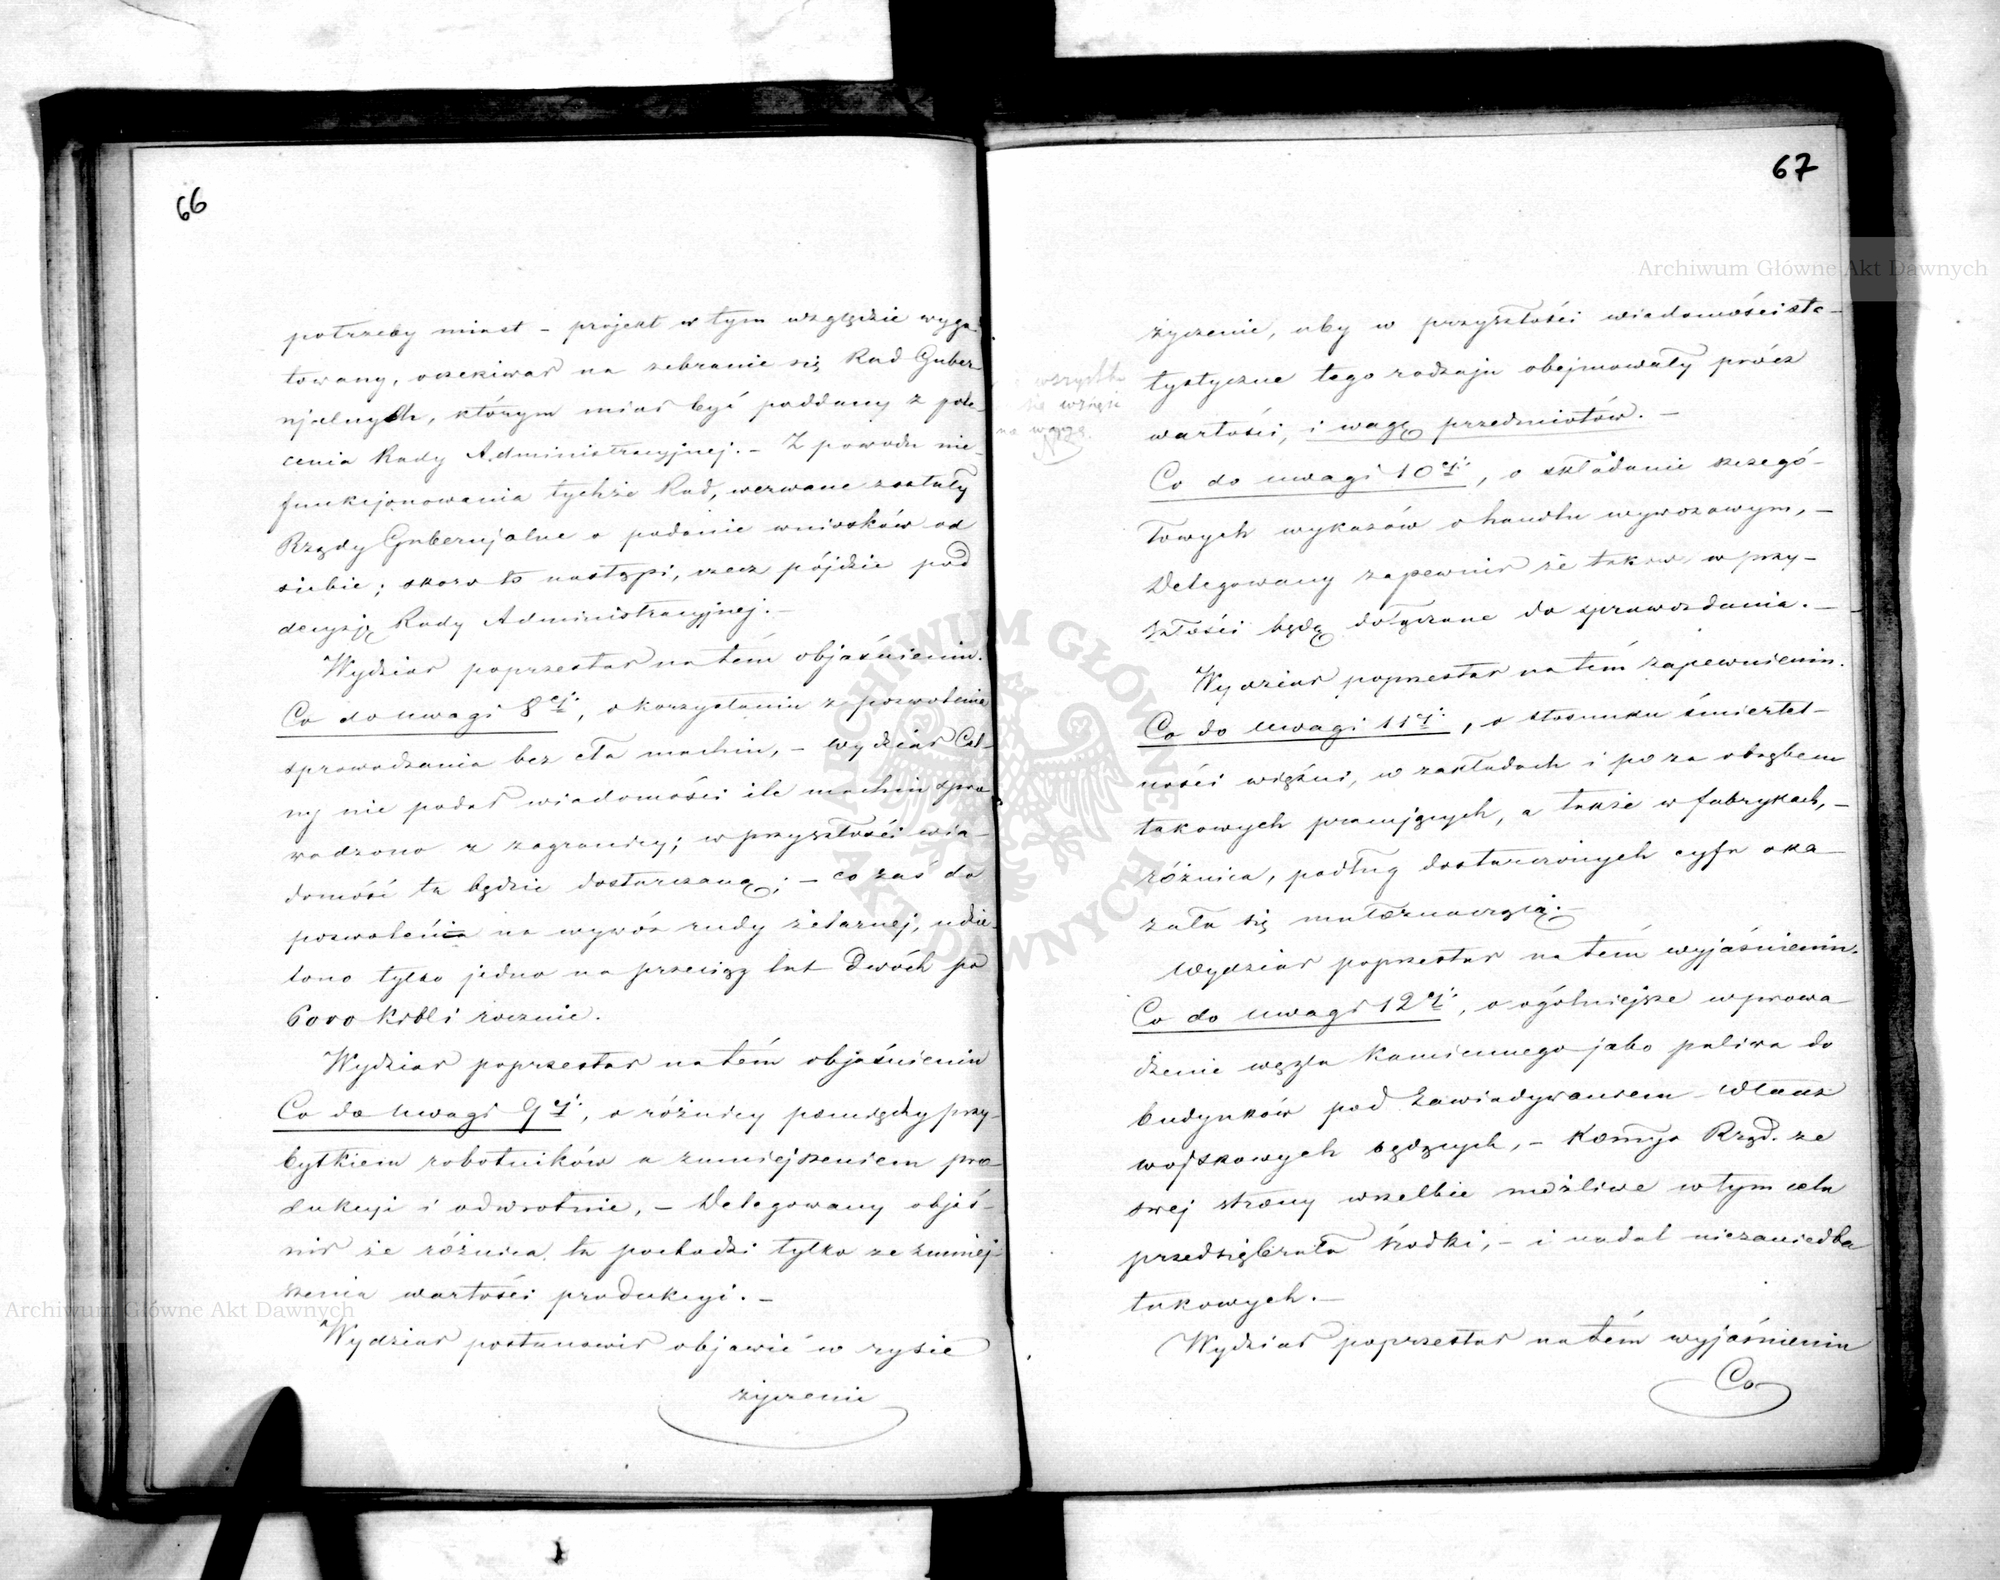 66
potrzeby miast – projekt w tym względzie wygo-
towany, oczekiwał na zebranie się Rad Guber-
njalnych, którym miał być poddany z pole-
cenia Rady Administracyjnej. – Z powodu nie-
funkcjonowania tychże Rad, wezwane zostały
Rządy Gubernjalne o podanie wniosków od
siebie; skoro to nastąpi, rzecz pójdzie pod
decyzję Rady Administracyjnej. –
Wydział poprzestał na tém objaśnieniu.
Co do uwagi 8éj:, o korzystaniu z pozwolenia
sprowadzania bez cła machin, – wydział Cel-
ny nie podał wiadomości ile machin spro-
wadzono z zagranicy; w przyszłości wia-
domość ta będzie dostarczaną; – co zaś do
pozwolenia na wywóz rudy żelaznej, udzie-
lono tylko jedno na przeciąg lat dwóch po
6000 Korbli rocznie.
Wydział poprzestał na tém objaśnieniu
Co do uwagi 9éj:, o różnicy pomiędzy przy-
bytkiem robotników a zmniejszeniem pro-
dukcyi i odwrotnie, – Delegowany objaś-
nił że różnica ta pochodzi tylko ze zmniej-
szenia wartości produkcyi. –
Wydział postanowił objawić w rysie
życzenie
67
wszystko
się wziąść
na wagę.
życzenie, aby w przyszłości wiadomości sta-
tystyczne tego rodzaju obejmowały prócz
wartości, i wagę przedmiotów. –
Co do uwagi 10éj:, o składanie szczegó-
łowych wykazów o handlu wywozowym, –
Delegowany zapewnił że takow. w przy-
szłości będą dołączone do sprawozdania. –
Wydział poprzestał na tém zapewnieniu.
Co do uwagi 11éj:, o stosunku śmiertel-
ności więźni, w zakładach i poza obrębem
takowych pracujących, a także w fabrykach, –
różnica, podług dostarczonych cyfr oka-
zała się mało znaczącą. –
Wydział poprzestał na tém wyjaśnieniu.
Co do uwagi 12éj:, o ogólniejsze wprowa-
dzenie węgla kamiennego jako paliwa do
budynków pod zawiadywaniem Władz
wojskowych będących, – Kommja Rząd. ze
swej strony wszelkie możliwe w tym celu
przedsiębrała środki, – i nadal niezaniedba
takowych. –
Wydział poprzestał na tém wyjaśnieniu
Co
Archiwum Główne Akt Dawnych
ARCHIWUM GŁÓWNE AKT DAWNYCH
Archiwum Główne Akt Dawnych